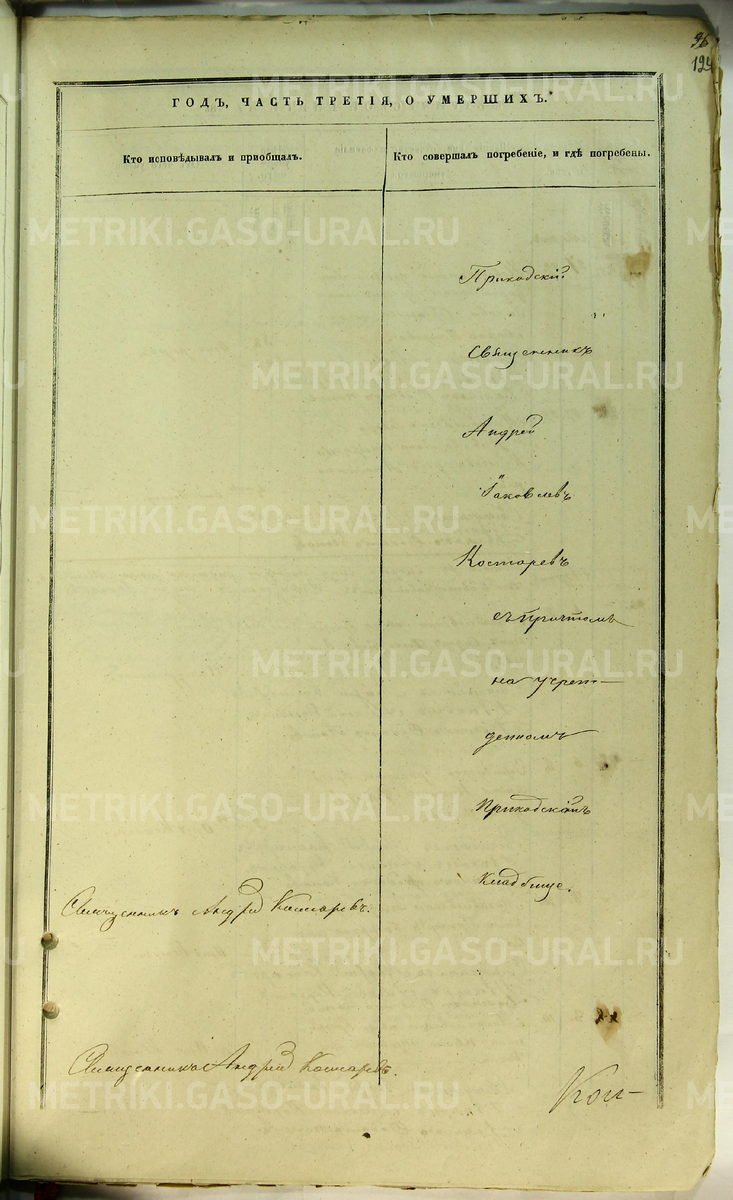 96
124
ГОДЪ, ЧАСТЬ ТРЕТІЯ, О УМЕРШИХЪ.
Кто исповѣдывалъ и приобщалъ.
Кто совершалъ погребеніе, и гдѣ погребены.
Приходскій
Священникъ
Андрей
Іаковлевъ
Костаревъ
съ причтомъ
на учреж-
денномъ
Приходскомъ
Кладбище.
Священникъ Андрей Костаревъ.
Священникъ Андрей Костаревъ.
METRIKI.GASO-URAL.RU